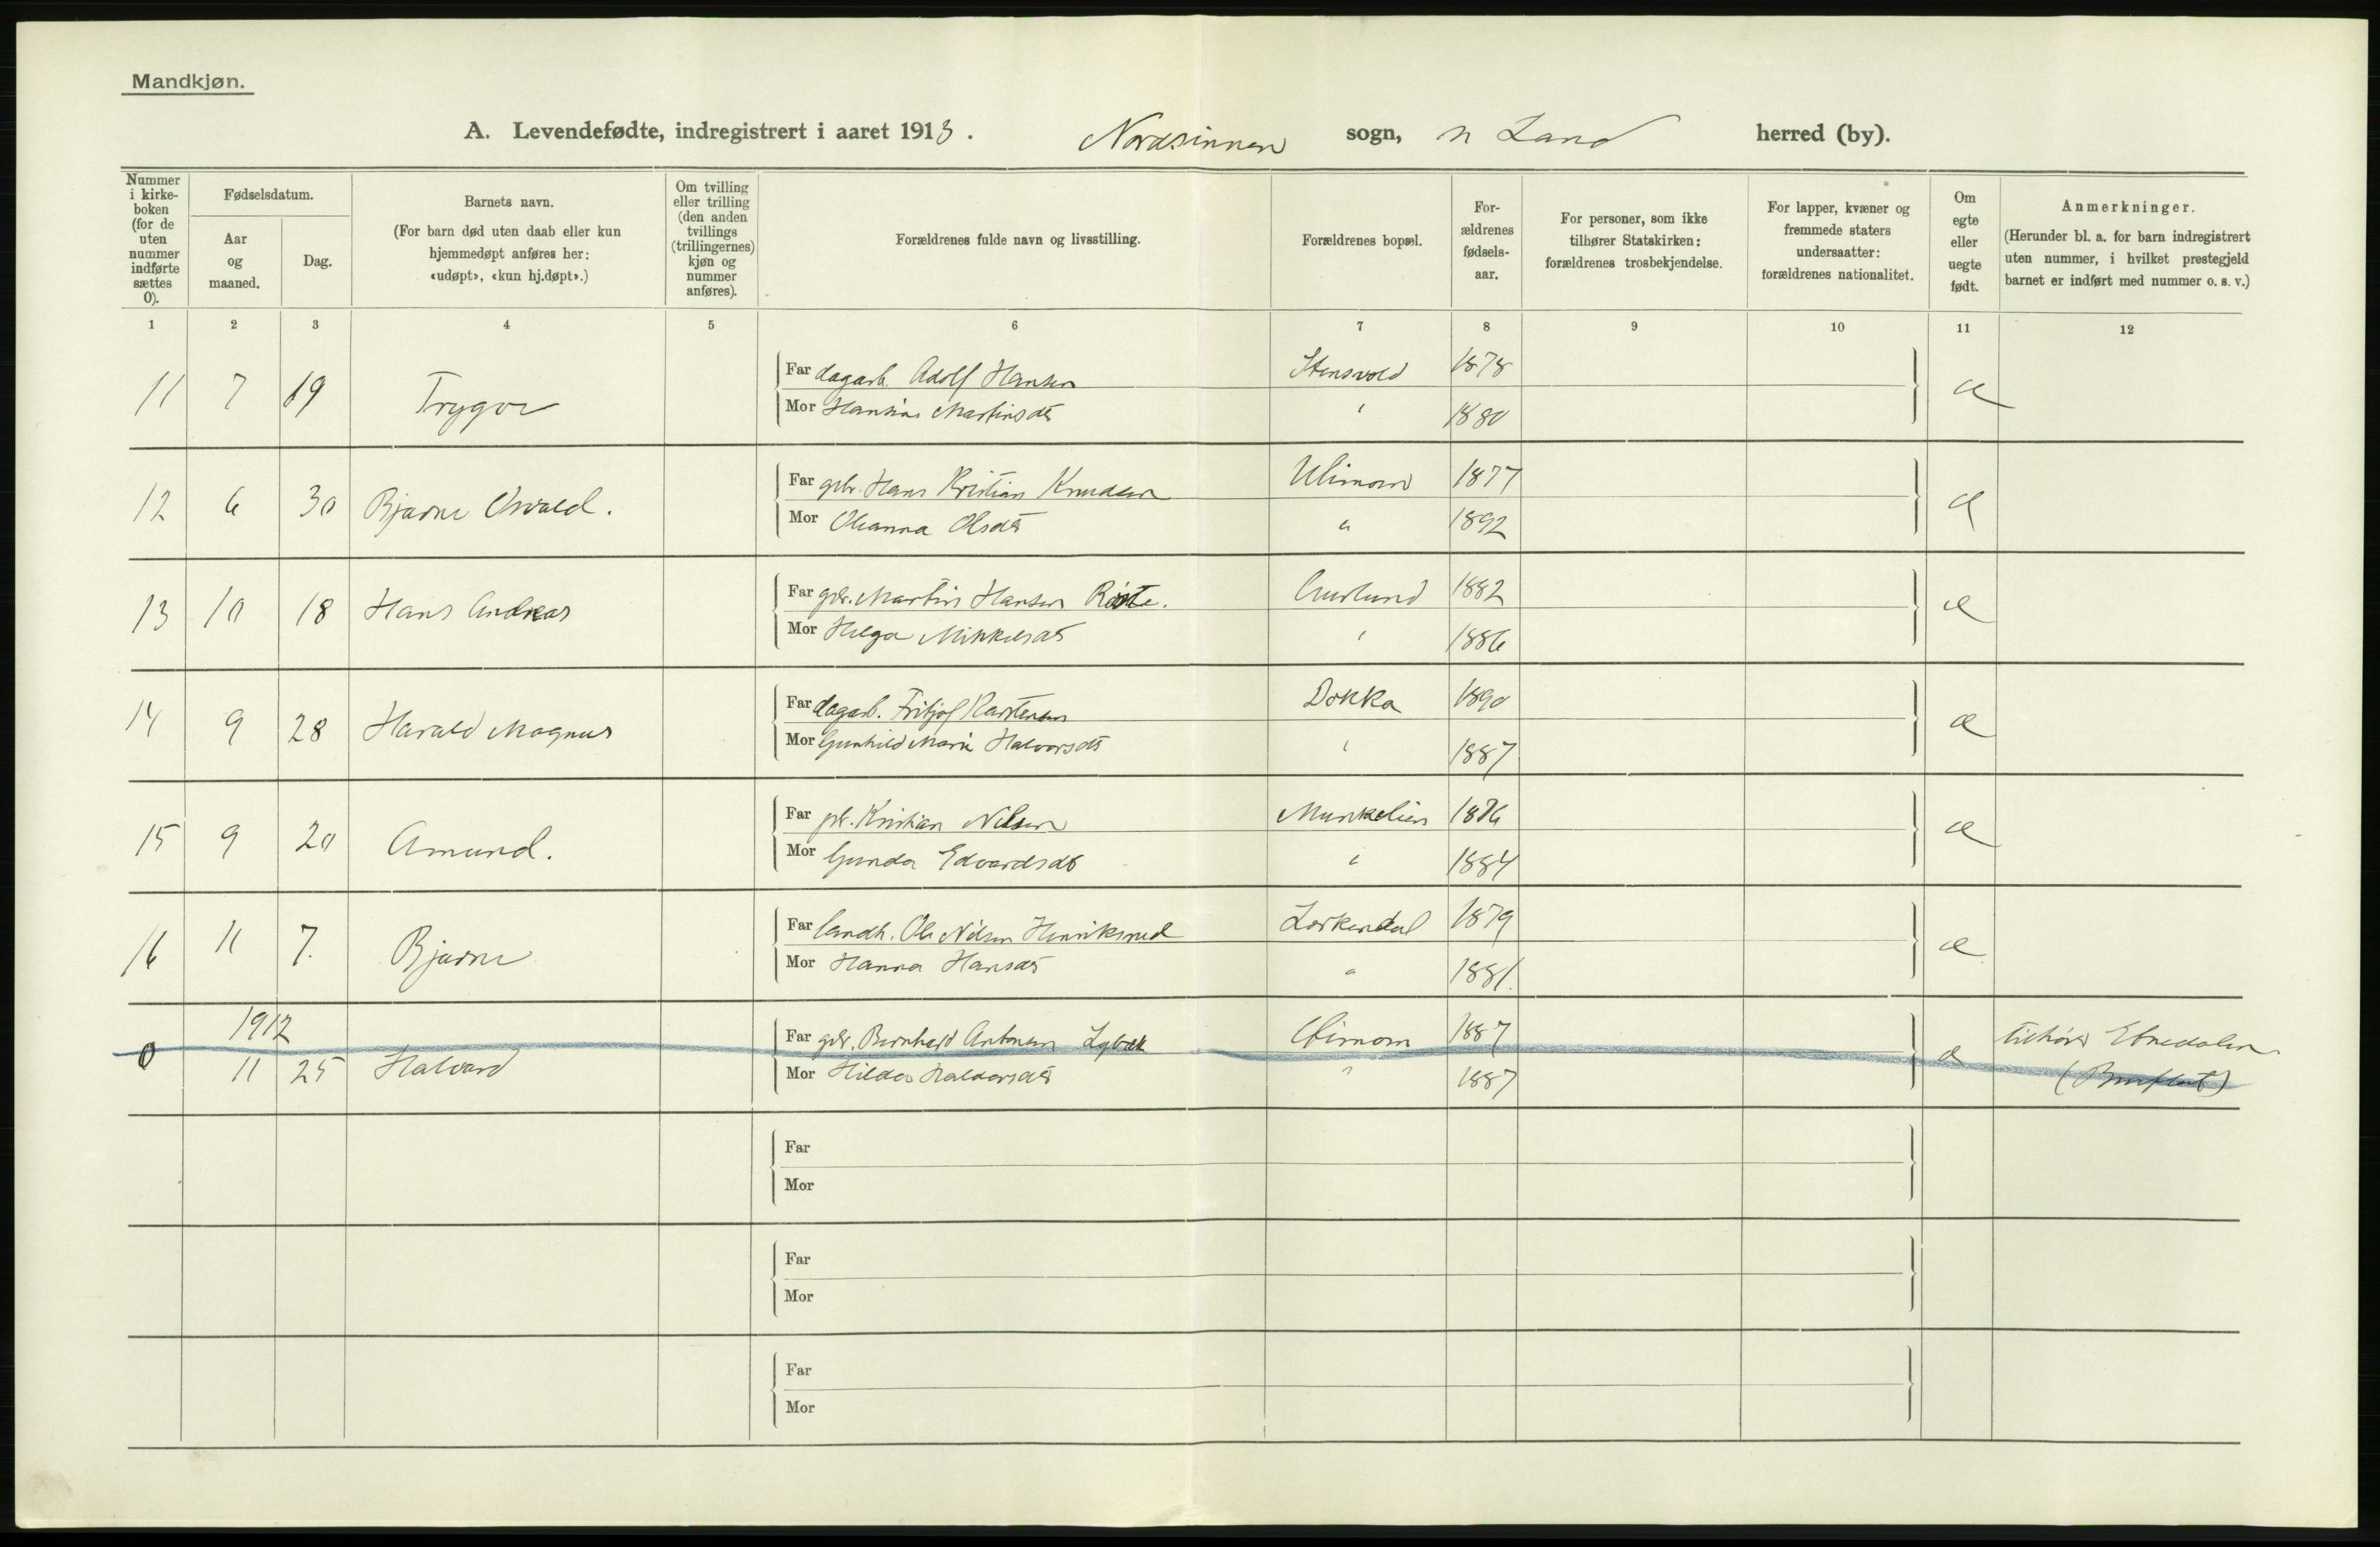 Mandkjøn.
A. Levendefødte, indregistrert i aaret 1913. Nordsinnen sogn, n Land herred (by).
Nummer i kirke-boken (for de uten nummer indførte sættes 0).
Fødselsdatum.
Aar og maaned.
Dag.
Barnets navn.
(For barn død uten daab eller kun hjemmedøpt anføres her: «udøpt», «kun hj.døpt».)
Om tvilling eller trilling (den anden tvillings (trillingernes) kjøn og nummer anføres).
Forældrenes fulde navn og livsstilling.
Forældrenes bopæl.
For-ældrenes fødsels-aar.
For personer, som ikke tilhører Statskirken: forældrenes trosbekjendelse.
For lapper, kvæner og fremmede staters undersaatter: forældrenes nationalitet.
Om egte eller uegte født.
Anmerkninger.
(Herunder bl. a. for barn indregistrert uten nummer, i hvilket prestegjeld barnet er indført med nummer o. s. v.)
1 2 3 4 5 6 7 8 9 10 11 12
11 7 19 Trygve Far dagarb. Adolf Hansen Stensvold 1878 æ
Mor Hansine Martinsdt 1880
12 6 30 Bjarne Osvald. Far gbr. Hans Kristian Knudsen Ulimoen 1877 æ
Mor Oleanna Olsdt " 1892
13 10 18 Hans Andreas Far gbr. Martin Hansen Røste. Aurlund 1882 æ
Mor Helga Mikkelsdt " 1886
14 9 28 Harald Magnus Far dagarb. Fritjof Karstensen Dokka 1890 æ
Mor Gunhild Marie Halvorsdt " 1887
15 9 20 Amund. Far Kristian Nilsen Munkelien 1876 æ
Mor Gunda Edvardsdt " 1884
16 11 7. Bjarne Far landh. Ole Nilsen Henriksrud Lerkendal 1879 æ
Mor Hanna Hansdt " 1881.
1912
0 11 25 Halvard Far gbr. Bernhard Antonsen 1887 æ tilhører Etnedalen
Mor Hilda Halvorsdt " 1887 (Bruflat)
Far
Mor
Far
Mor
Far
Mor